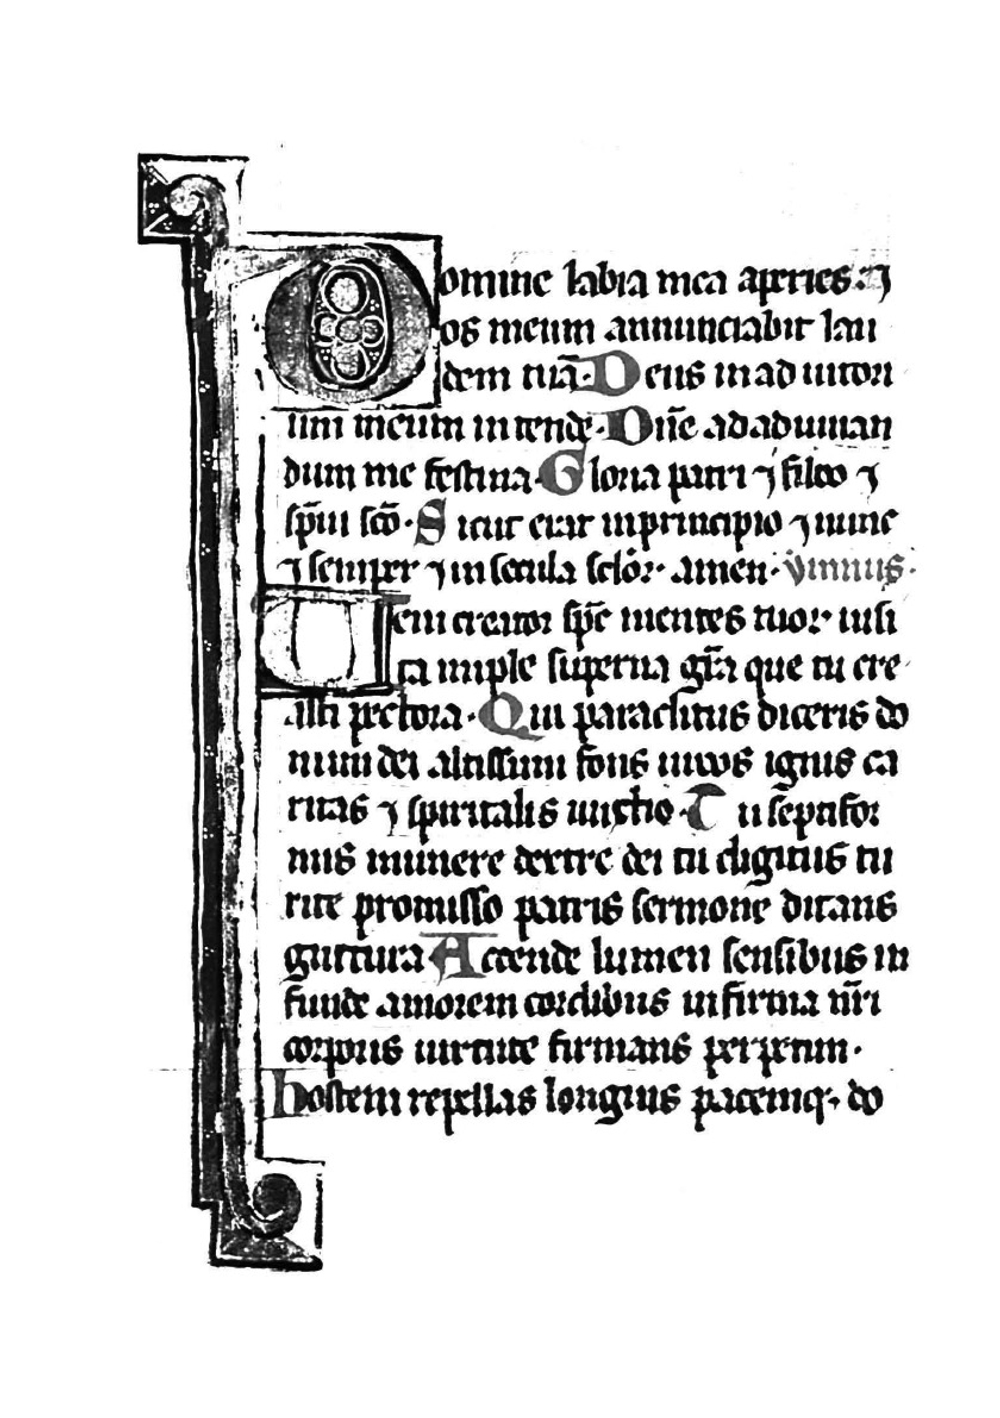 Domine labia mea aperies: ⁊
os meum annunciabit lau
dem tuā. Deus in ad iutori
um meum in tende. Dn̄e ad ad iuuan
dum me festina. Gloria patri ⁊ filio ⁊
sp̄ui sc̄o. Sicut erat in principio ⁊ nunc
⁊ semper ⁊ in secula sclōꝝ. amen. ymnus.
Ueni creator sp̄c mentes tuoꝝ uisi
ta imple superna gr̄a que tu cre
asti pectora. Qui paraclitus diceris do
num dei altissimi fons uiuus ignis ca
ritas ⁊ spiritalis unctio. Tu septifor
mis munere dextre dei tu digitus tu
rite promisso patris sermone ditans
guttura Accende lumen sensibus in
funde amorem cordibus infirma nr̄i
corporis uirtute firmans perpetim.
hostem repellas longius pacemqꝫ do